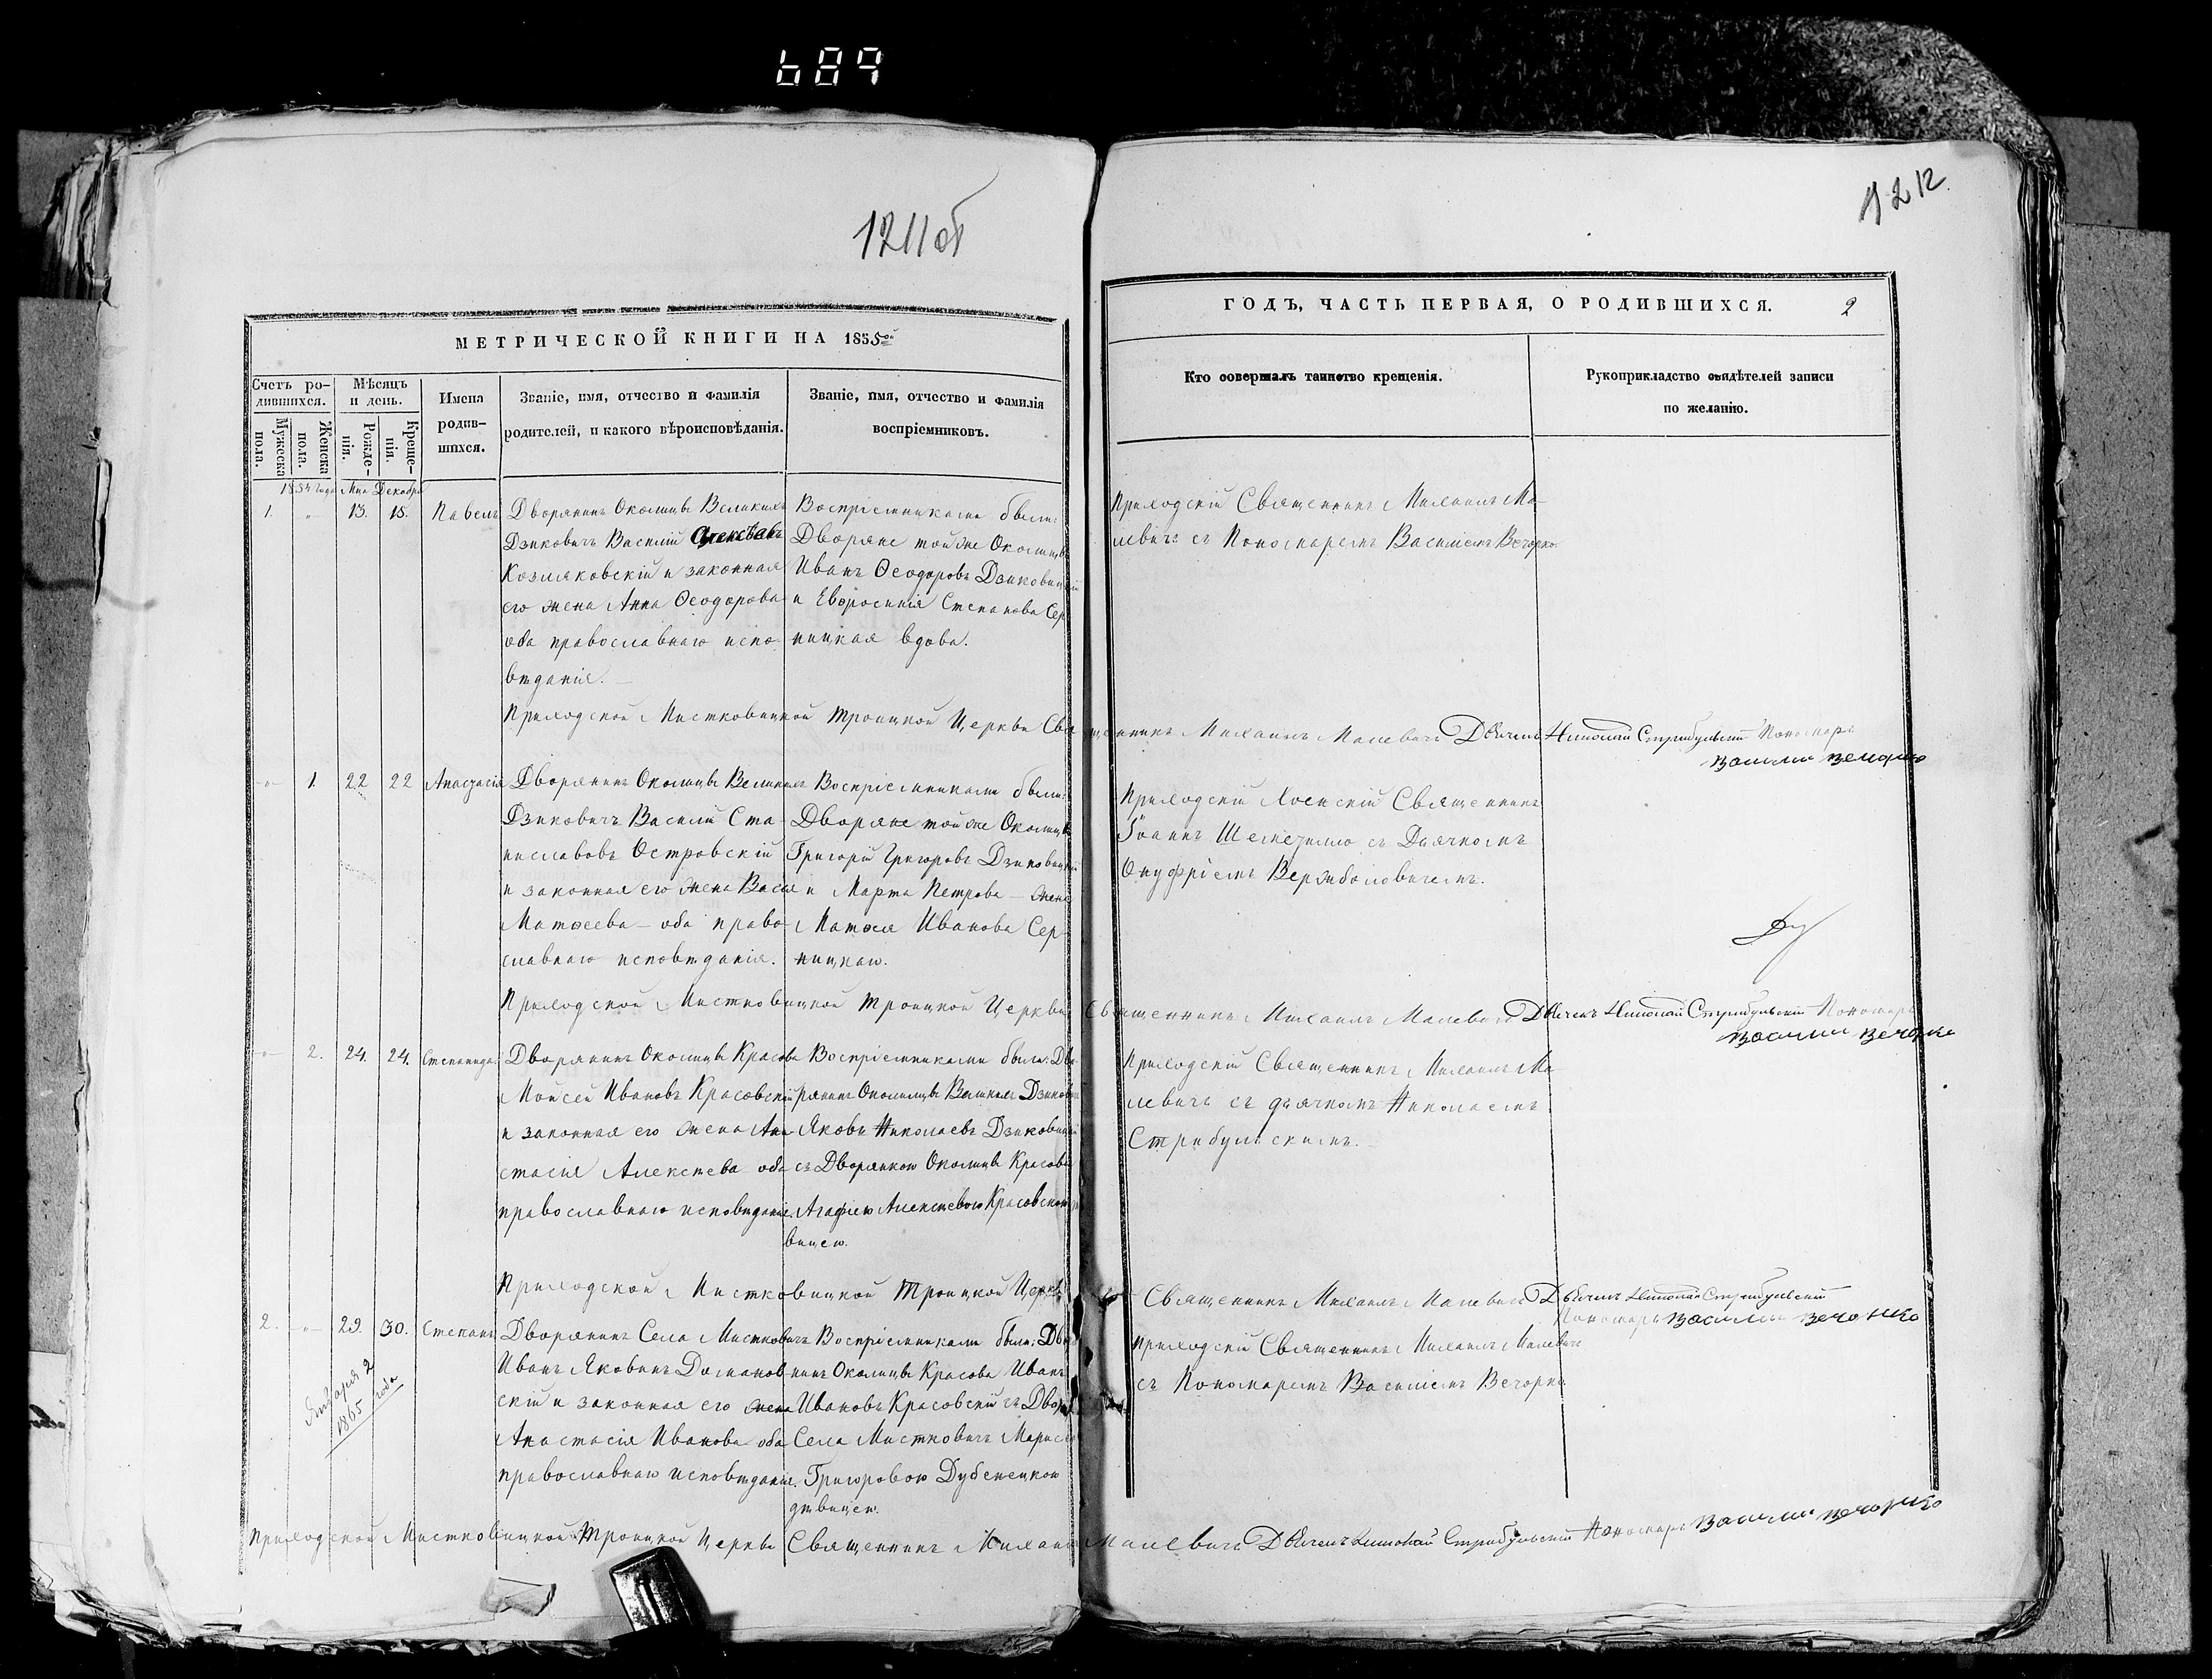 689
1211об
1212
МЕТРИЧЕСКОЙ КНИГИ НА 1855ой
ГОДЪ, ЧАСТЬ ПЕРВАЯ, О РОДИВШИХСЯ.
2
Счетъ ро-
дившихся.
Мужеска
пола.
Женска
пола.
Мѣсяцъ
и день.
Рожде-
нія.
Креще-
нія.
Имена
родив-
шихся.
Званіе, имя, отчество и фамилія
родителей, и какого вѣроисповѣданія.
Званіе, имя, отчество и фамилія
воспріемниковъ.
Кто совершалъ таинство крещенія.
Рукоприкладство свидѣтелей записи
по желанію.
1854 года Мца Декабря
1. „ 13. 18. Павелъ
Дворянинъ Околицы Великихъ
Дзиковичъ Василій
Козляковскій и законная
его жена Анна Ѳеодорова
оба православнаго испо-
вѣданія.
Воспріемниками были:
Дворяне той же Околицы
Иванъ Ѳеодоровъ Дзиковицкій
и Евфросинія Степанова Сер-
ницкая вдова.
Приходскій Священникъ Михаилъ Ма-
левичъ съ Пономаремъ Василіемъ Вечорко.
Приходской Мистковицкой Троицкой Церкви Священникъ Михаилъ Малевичъ Дьячекъ Николай Стрибульскій Пономарь
Василии Вечорко
„ 1. 22 22 Анастасія
Дворянинъ Околицы Великихъ
Дзиковичъ Василій Ста-
ниславовъ Островскій
и законная его жена Васса
Матѳеева – оба право-
славнаго исповѣданія.
Воспріемниками были:
Дворяне той же Околицы
Григорій Григоровъ Дзиковицкій
и Марта Петрова – жена
Матѳея Иванова Сер-
ницкаго.
Приходскій Хоенскій Священникъ
Іоаннъ Шеметилло съ Дьячкомъ
Онуфріемъ Вержболовичемъ.
Приходской Мистковицкой Троицкой Церкви Священникъ Михаилъ Малевичъ Дьячекъ Николай Стрибульскій Пономарь
Василии Вечорко
„ 2. 24. 24. Степанида
Дворянинъ Околицы Красова
Мойсей Ивановъ Красовскій
и законная его жена Ана-
стасія Алексѣева оба
православнаго исповѣданія.
Воспріемниками были: Дво-
рянинъ Околицы Великихъ Дзиковичъ
Яковъ Николаевъ Дзиковицкій
съ Дворянкою Околицы Красова
Агафіею Алексѣевою Красовскою
вицею.
Приходскій Священникъ Михаилъ Ма-
левичъ съ дьячкомъ Николаемъ
Стрибульскимъ.
Приходской Мистковицкой Троицкой Церкви Священникъ Михаилъ Малевичъ Дьячекъ Николай Стрибульскій
Пономарь Василии Вечорко
2. „ 29. 30. Степанъ
Января 2
1865 года
Дворянинъ Села Мистковичъ
Иванъ Яковинъ Доманов-
скій и законная его жена
Анастасія Иванова оба
православнаго исповѣданія.
Воспріемниками были: Дво-
нинъ Околицы Красова Иванъ
Ивановъ Красовскій съ Двор
Села Мистковичъ
Григоровою Дубенецкою
дѣвицею.
Приходскій Священникъ Михаилъ Малевичъ
съ Пономаремъ Василіемъ Вечорко
Приходской Мистковицкой Троицкой Церкви Священникъ Михаилъ Малевичъ Дьячекъ Николай Стрибульскій Пономарь Василии Вечорко